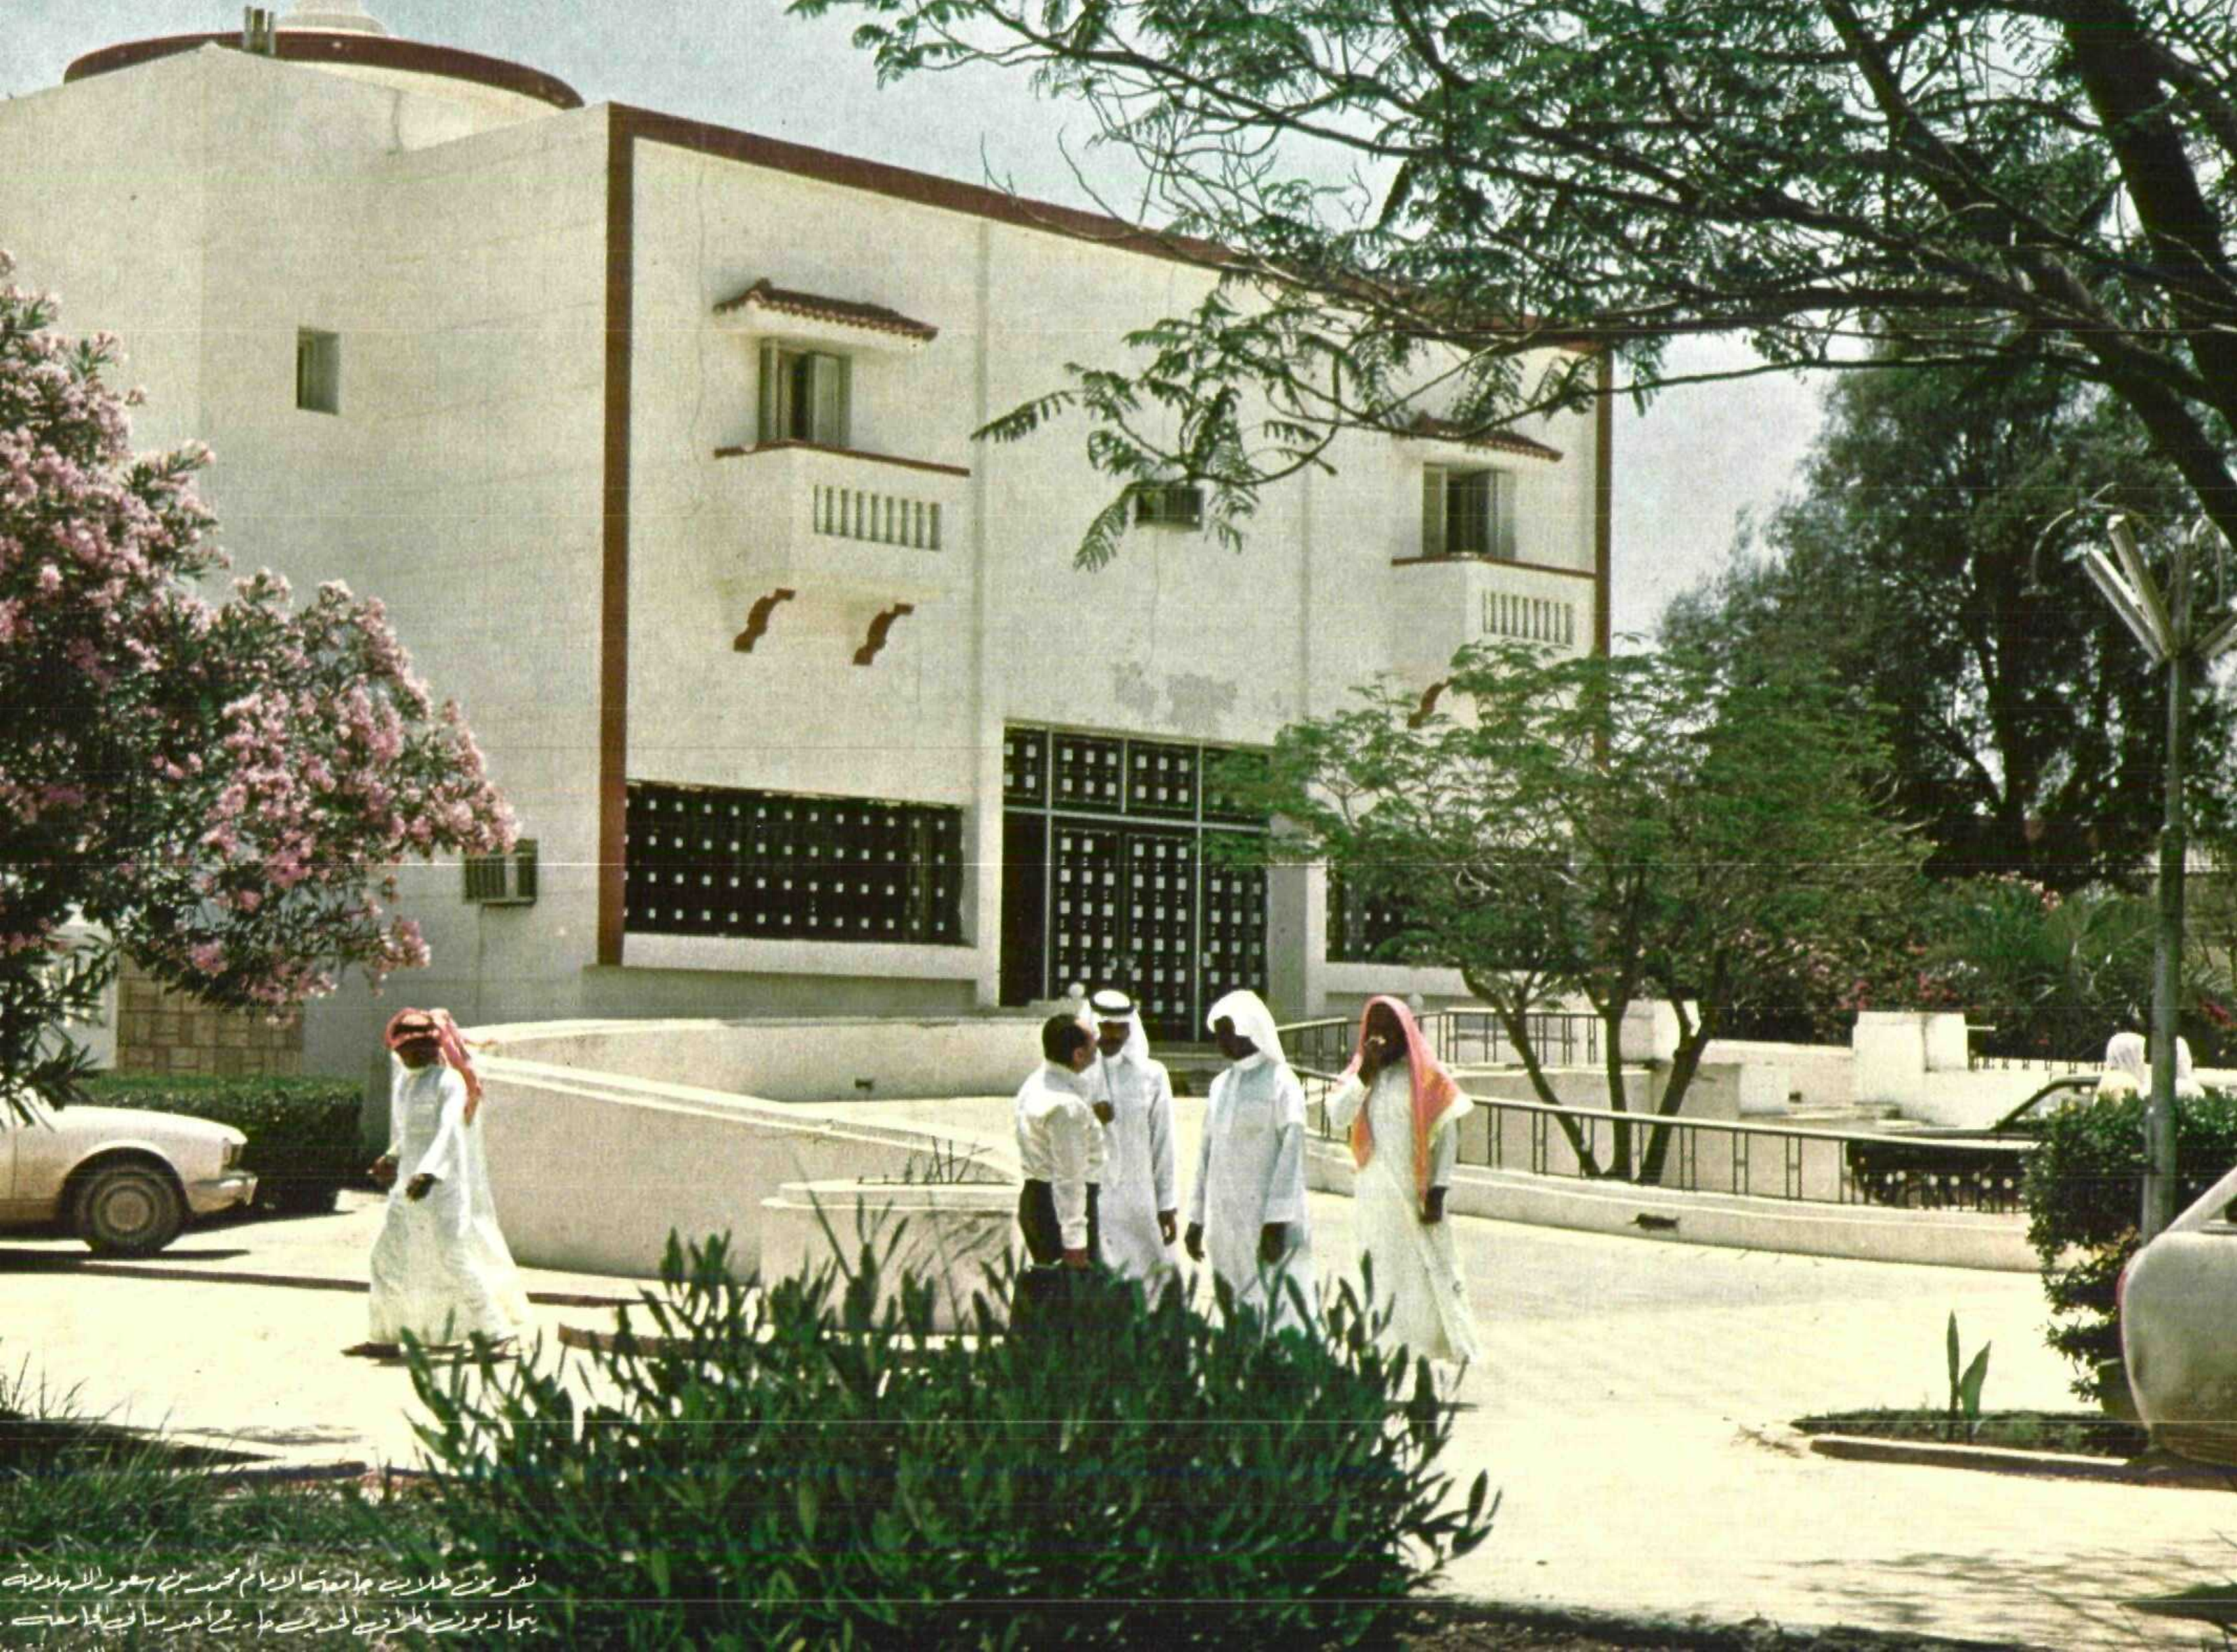 نفر من طلاب جامعة الامام محمد بن سعود الاسلامية
يتجاذبون أطراف الحديث خارج أحد مباني الجامعة .